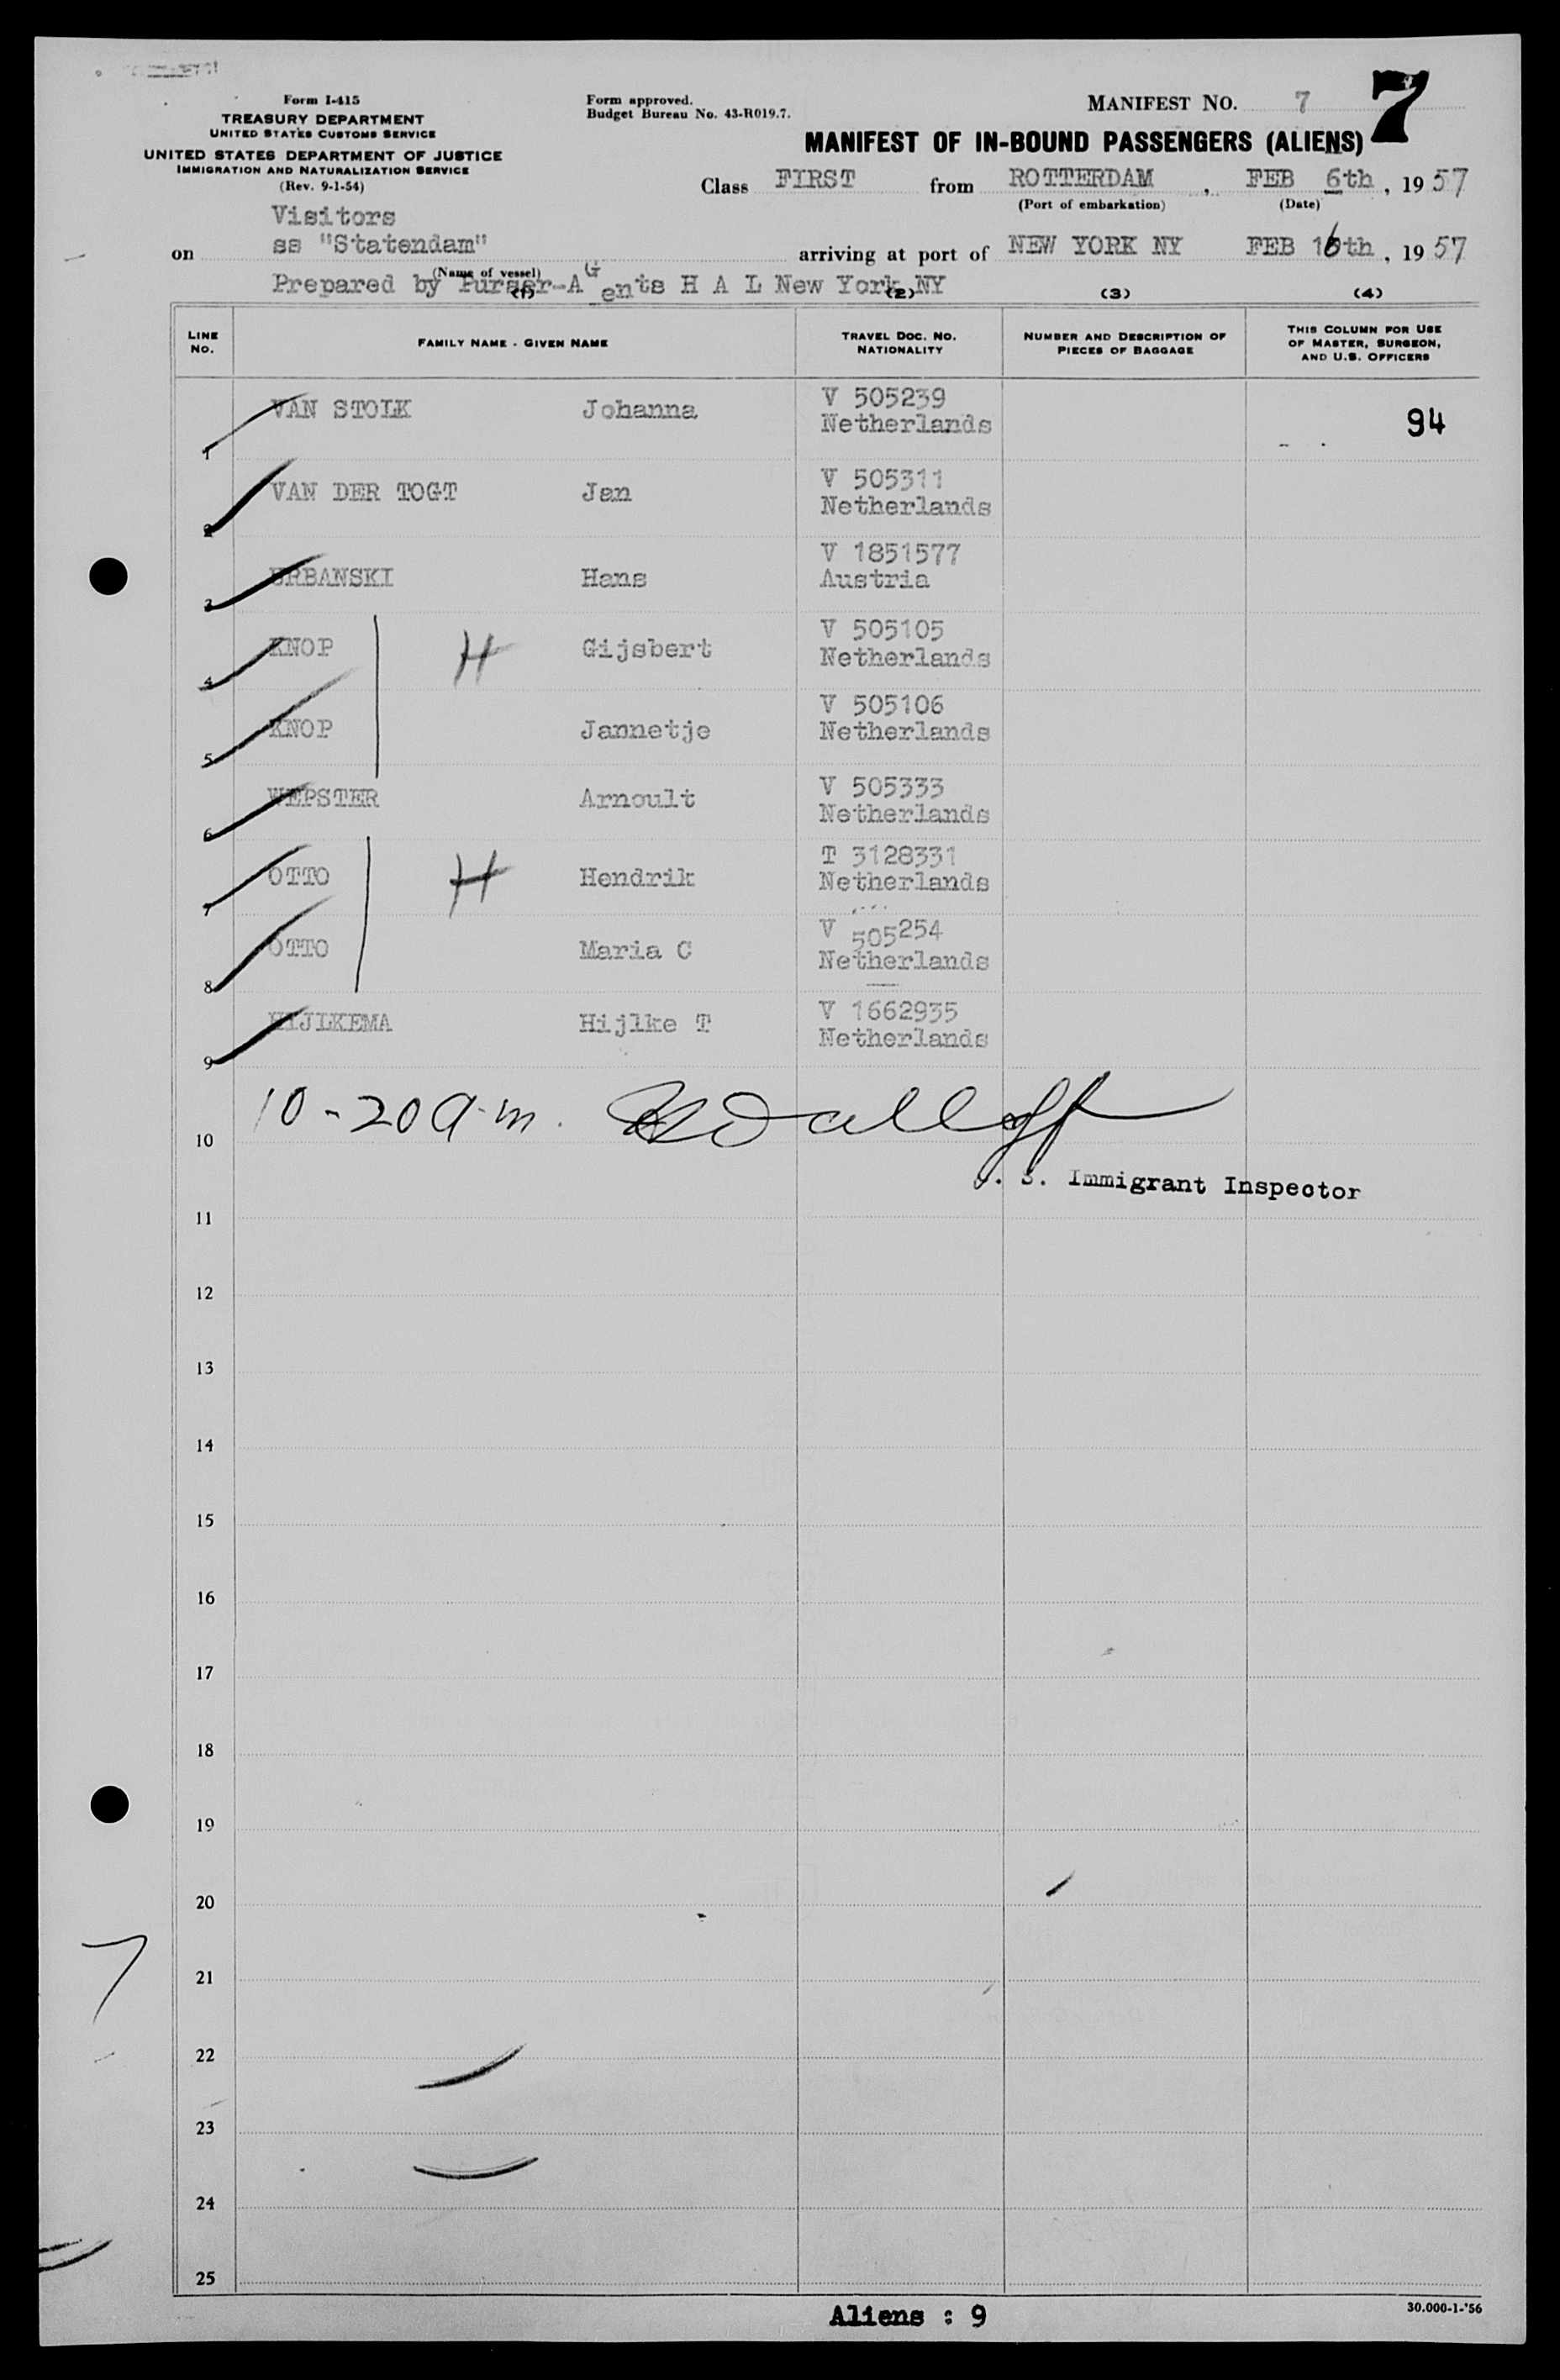 Form I-415
TREASURY DEPARTMENT
UNITED STATES CUSTOMS SERVICE
UNITED STATES DEPARTMENT OF JUSTICE
IMMIGRATION AND NATURALIZATION SERVICE
(Rev. 9-1-54)
Form approved.
Budget Bureau No. 43-R019.7.
MANIFEST NO. 7 7
MANIFEST OF IN-BOUND PASSENGERS (ALIENS)
Class FIRST from ROTTERDAM , FEB 6th , 19 57
(Port of embarkation) (Date)
Visitors
on ss "Statendam" arriving at port of NEW YORK NY FEB 16th , 19 57
(Name of vessel)
Prepared by Purser-AGents H A L New York NY
(1) (2) (3) (4)
LINE NO. FAMILY NAME - GIVEN NAME TRAVEL DOC. NO. NATIONALITY NUMBER AND DESCRIPTION OF PIECES OF BAGGAGE THIS COLUMN FOR USE OF MASTER, SURGEON, AND U.S. OFFICERS
1 VAN STOLK Johanna V 505239 Netherlands 94
2 VAN DER TOGT Jan V 505311 Netherlands
3 URBANSKI Hans V 1851577 Austria
4 KNOP H Gijsbert V 505105 Netherlands
5 KNOP Jannetje V 505106 Netherlands
6 WEPSTER Arnoult V 505333 Netherlands
7 OTTO H Hendrik T 3128331 Netherlands
8 OTTO Maria C V 505254 Netherlands
9 HIJLKEMA Hijlke T V 1662935 Netherlands
10-20 a.m.
10
U. S. Immigrant Inspector
11
12
13
14
15
16
17
18
19
20
7
21
22
23
24
25
Aliens : 9
30.000-1-'56